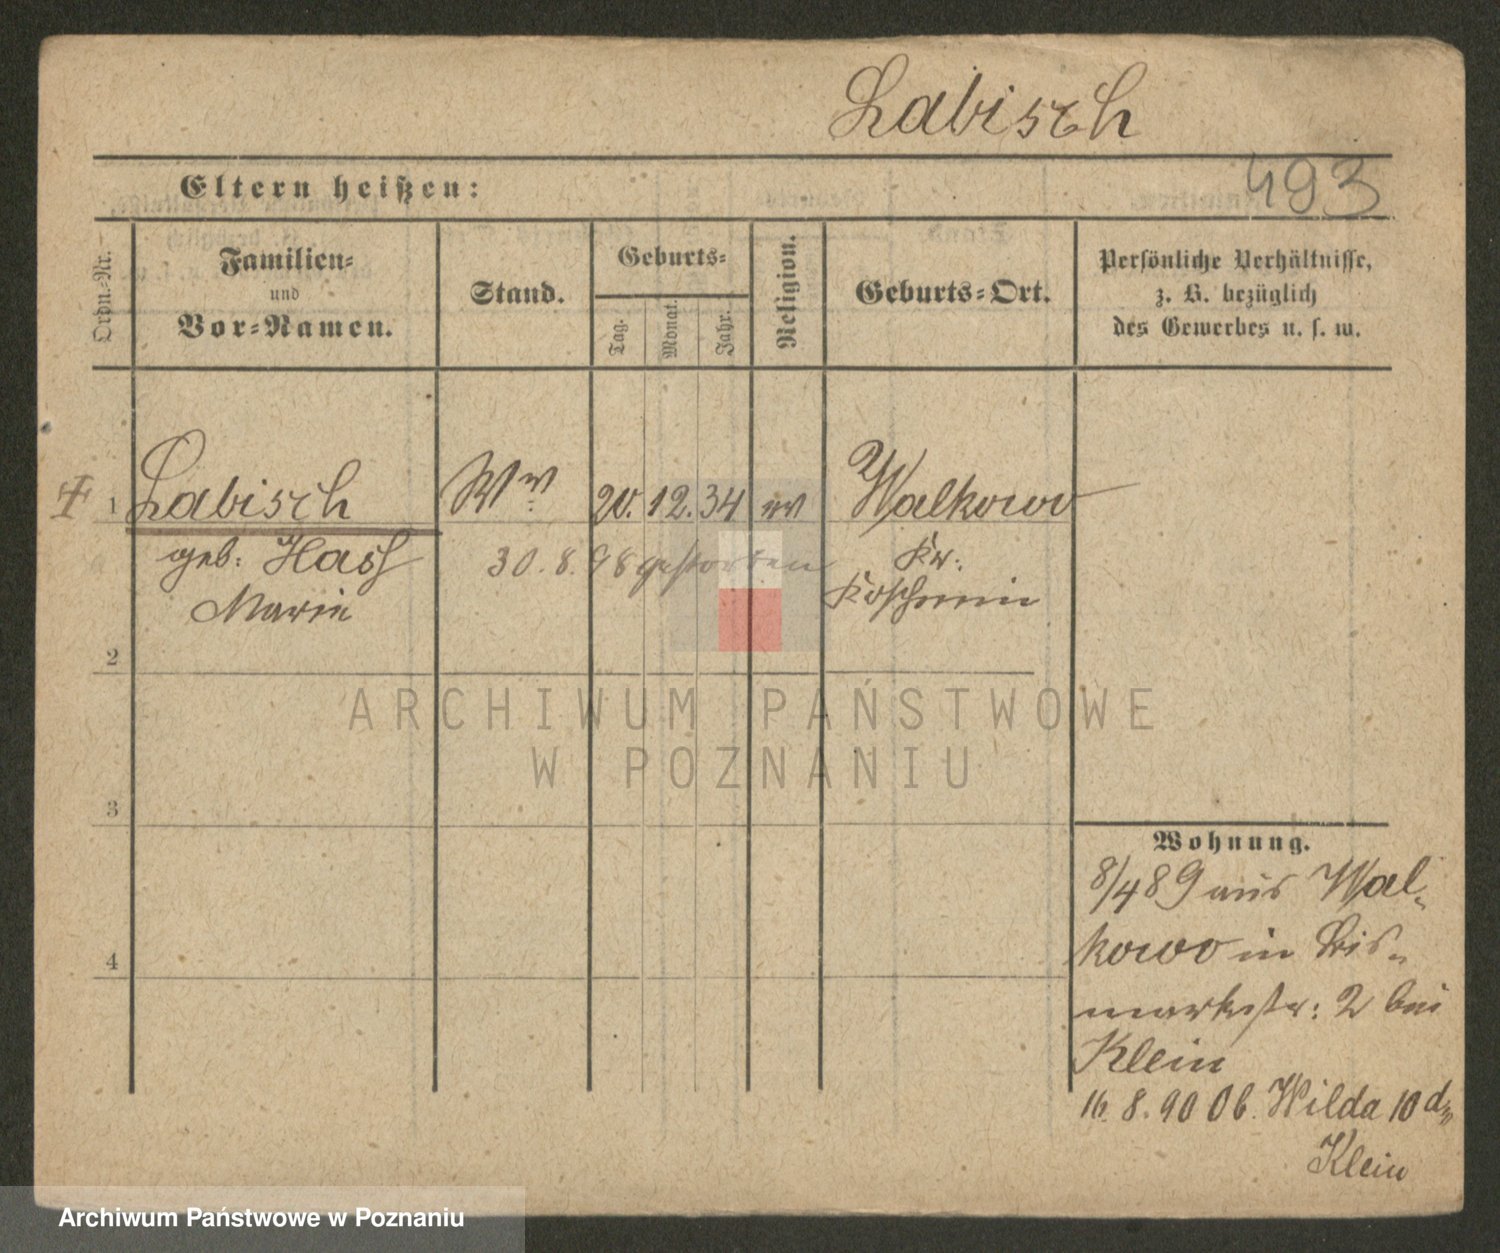 Labisch
Eltern heißen:
493
Ordn.-Nr.
Familien-
und
Vor-Namen.
Stand.
Geburts-
Tag.
Monat.
Jahr.
Religion.
Geburts-Ort.
Persönliche Verhältnisse,
z. B. bezüglich
des Gewerbes u. s. w.
1 Labisch Ww 20. 12. 34 ev Walkowo
geb: Hass
Kr.
30. 8. 98 gestorben
Marie
Koschmin
2
ARCHIWUM PAŃSTWOWE
W POZNANIU
3
Wohnung.
8/4 89 aus Wal-
kowo in Bis-
markstr: 2 bei
Klein
4
16. 8. 90 Ob. Wilda 10
Klein
Archiwum Państwowe w Poznaniu